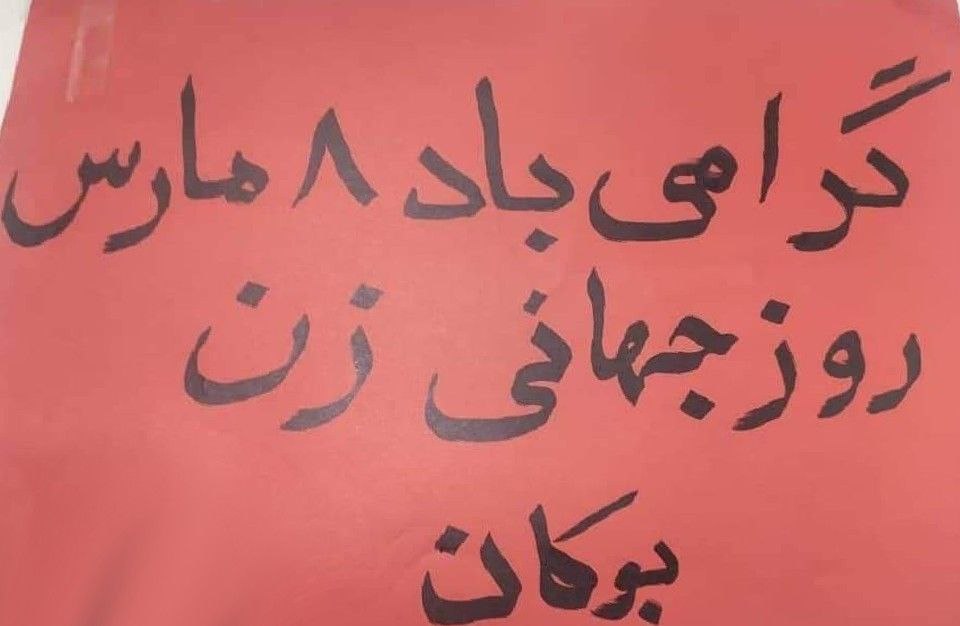 گرامی باد ۸ مارس
روز جهانی زن
بوکان